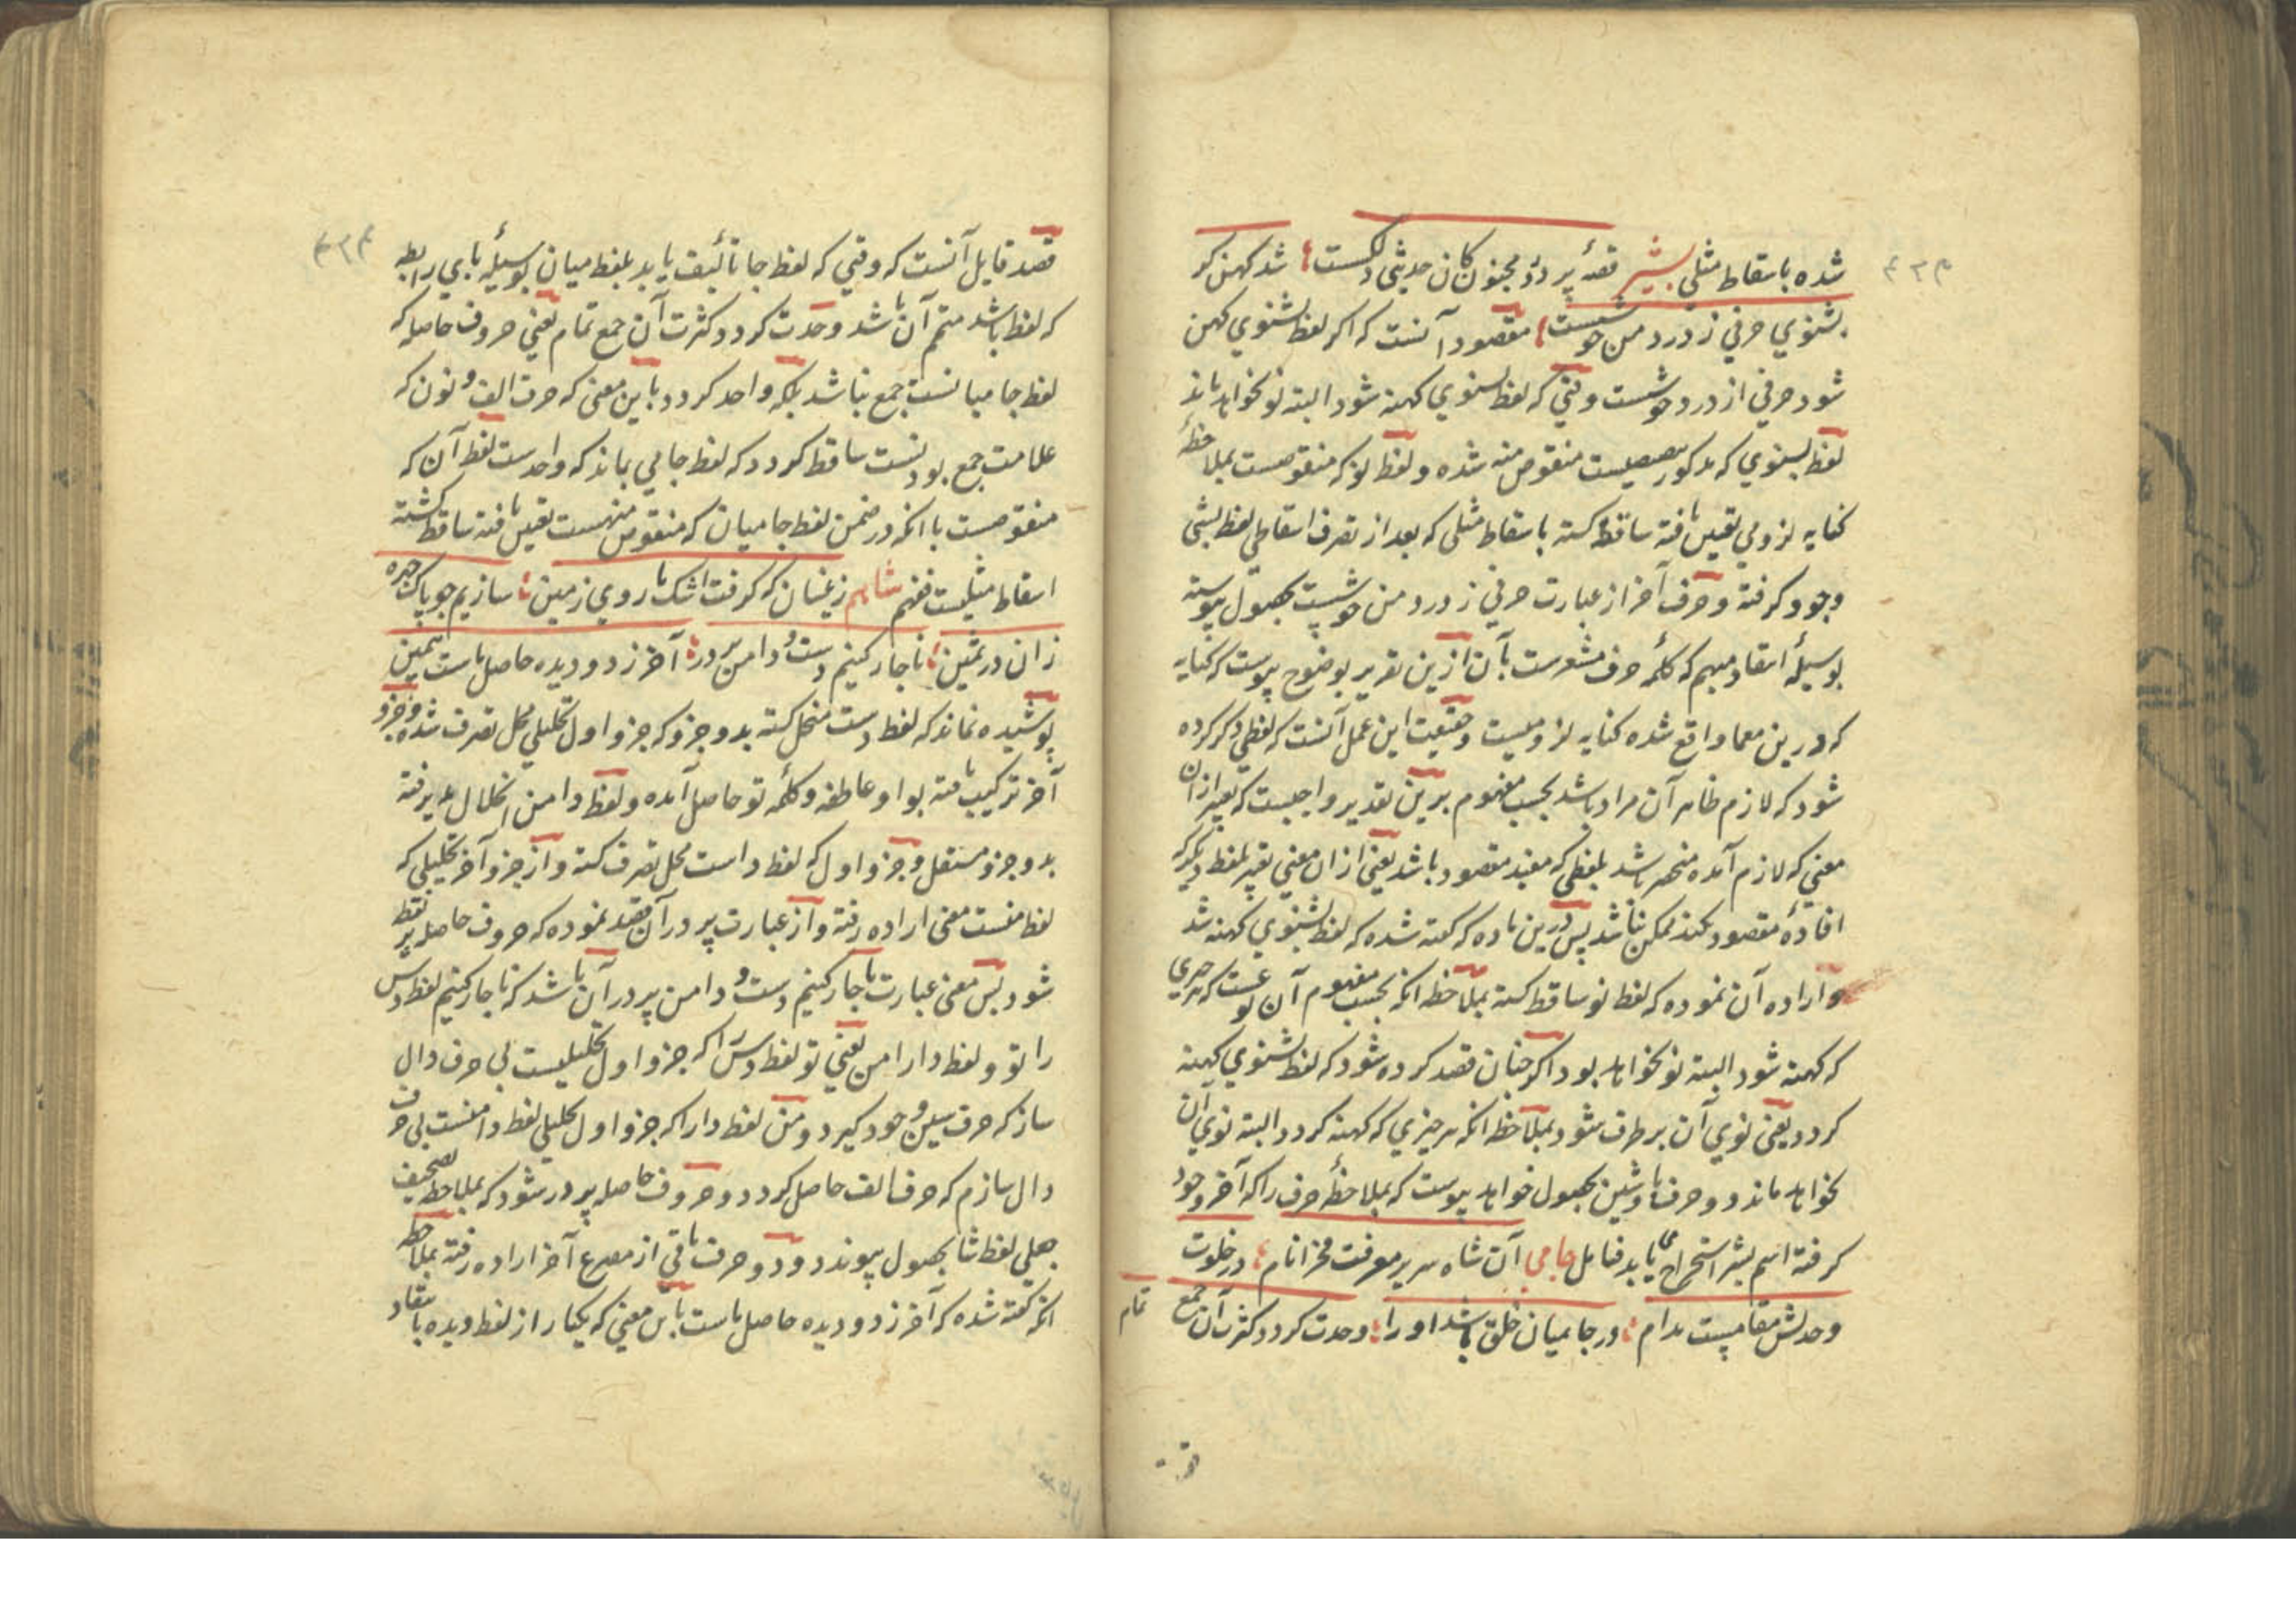 شده باسقاط مثلی بشیر قصهٔ پر درد مجنون کان حدیثی دلکست شد کهن کر
بشنوی حرفی ز درد من خوشست مقصود آنست که اکر لفظ بشنوی کهن
شود حرفی از درد خوشست وقتی که لفظ بشنوی کهنه شود البته نو نخواهد ماند
لفظ بشنوی که مذکور منقوص منه شده و لفظ نو که منقوصست بملاحظهٔ
کنایه لزومی تعین یافته ساقط کشته باسقاط مثلی که بعد از تصرف اسقاطی لفظ بشی
وجود کرفته و حرف آخر از عبارت حرفی ز درد من خوشست بحصول پیوسته
بوسیلهٔ انتقاد مبهم که کلمهٔ حرف مشعرست بآن ازین تقریر بوضوح پیوست که کنایه
که درین معما واقع شده کنایه لزومیست و حقیقت این عمل آنست که لفظی ذکر کرده
شود که لازم ظاهر آن مراد باشد بحسب مفهوم برین تقدیر واجبست که تعبیر ازان
معنی که لازم آمده منحصر باشد بلفظی که مفید مقصود باشد یعنی ازان معنی تعبیر بلفظ دیکر که
افادهٔ مقصود کند ممکن نباشد پس درین ماده که کفته شده که لفظ بشنوی کهنه شد
و اراده آن نموده که لفظ نو ساقط کشته بملاحظه انکه بحسب مفهوم آن نو عست که هر چیزی
که کهنه شود البته نو نخواهد بود اکر چنان قصد کرده شود که لفظ بشنوی کهنه
کردد یعنی نوی آن برطرف شود بملاحظه انکه هر چیزی که کهنه کردد البته نوی آن
نخواهد ماند و حرف با و شین بحصول خواهد پیوست که بملاحظهٔ حرف را که آخر وجود
کرفته اسم بشر استخراج می یابد فتامل جامی آن شاه سریر معرفت فخر انام در خلوت
وحدتش مقامیست مدام در جا میان خلق باشد او را وحدت کردد کثرت آن جمع تمام
قصد قایل آنست که وقتی که لفظ جا تألیف یابد بلفظ میان بوسیلهٔ بای رابطه
که لفظ باشد متمم آن باشد وحدت کردد کثرت آن جمع تمام یعنی حروف حاصله که
لفظ جا میانست جمع نباشد بلکه واحد کردد باین معنی که حرف الف و نون که
علامت جمع بودنست ساقط کردد که لفظ جامی بماند که واحدست لفظ آن که
منقوصست با انکه در ضمن لفظ جامیان که منقوص منهست تعین یافته ساقط کشته
اسقاط مثلیست فتفهم شاهم زینسان که کرفت اشک ما روی زمین سازیم چو پاک چهره
زان در ثمین ناچار کنیم دست و دامن پر در آخر ز دو دیده حاصل ماست همین
پوشیده نماند که لفظ دست منحل کشته بدو جزو که جزو اول تحلیلی محل تصرف شده و جزو
آخر ترکیب یافته بواو عاطفه و کلمهٔ تو حاصل آمده و لفظ دامن انحلال پذیرفته
بدو جزو مستقل و جزو اول که لفظ داست محل تصرف کشته و از جزو آخر تحلیلی که
لفظ منست معنی اراده رفته و از عبارت پر در آن قصد نموده که حروف حاصله پر نقط
شود پس معنی عبارت ناچار کنیم دست و دامن پر در آن باشد که ناچار کنیم لفظ دس
را تو و لفظ دا را من یعنی تو لفظ دس را که جزو اول تحلیلیست بی حرف دال
ساز که حرف سین وجود کیرد و من لفظ دا را که جزو اول تحلیلی لفظ دامنست بی حرف
دال سازم که حرف الف حاصل کردد و حروف حاصله پر در شود که بملاحظه تصحیف
جعلی لفظ شا بحصول پیوندد و دو حرف باقی از مصرع آخر اراده رفته بملاحظه
انکه کفته شده که آخر ز دو دیده حاصل ماست باین معنی که یکبار از لفظ دیده بانتقاد